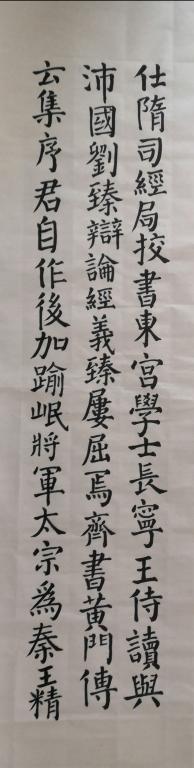 仕隋司經局挍書東宮學士長寧王侍讀與
沛國劉臻辯論經義臻屢屈焉齊書黃門傳
云集序君自作後加踰岷將軍太宗為秦王精